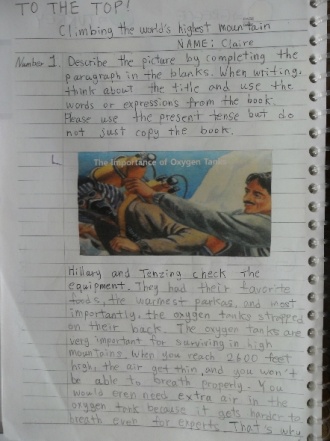 TO THE TOP!
Climbing the world's highest mountain
NAME: Claire
Number 1. Describe the picture by completing the
paragraph in the blanks. When writing,
think about the title and use the
words or expressions from the book.
Please use the present tense but do
not just copy the book.
The Importance of Oxygen Tanks
Hillary and Tenzing check the
equipment. They had their favorite
foods, the warmest parkas, and most
importantly, the oxygen tanks strapped
on their back. The oxygen tanks are
very important for surviving in high
mountains. When you reach 2600 feet
high, the air get thin, and you won't
be able to breath properly. You
would even need extra air in the
oxygen tank because it gets harder to
breath even for experts. That's why